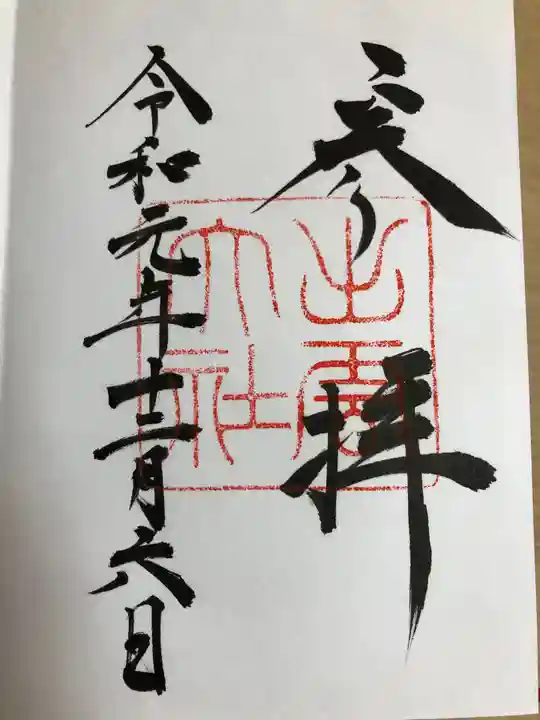 参拝
出雲大社
令和元年十二月六日